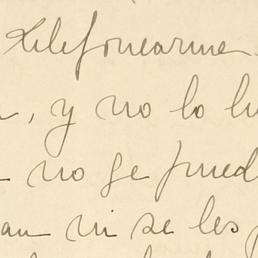 telefonearme
, y no lo
no se pued
an ni se les